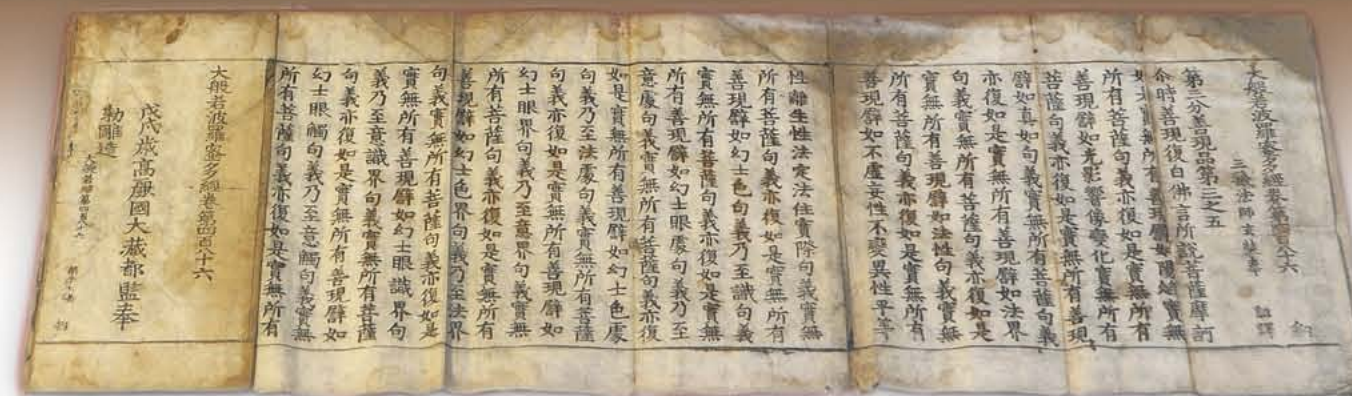 大般若波羅蜜多經卷第四百八十六
三藏法師玄奘奉 詔譯
第三分善現品第三之五
尒時善現復白佛言所說菩薩摩訶
實無所有善現
所有菩薩句義亦復如是實無所有
善現譬如光影響像變化實無所有
菩薩句義亦復如是實無所有善現
譬如真如句義實無所有菩薩句義
亦復如是實無所有善現譬如法界
句義實無所有菩薩句義亦復如是
實無所有善現譬如法性句義實無
所有菩薩句義亦復如是實無所有
善現譬如不虛妄性不變異性平等
性離生性法定法住實際句義實無
所有菩薩句義亦復如是實無所有
善現譬如幻士色句義乃至識句義
實無所有菩薩句義亦復如是實無
所有善現譬如幻士眼處句義乃至
意處句義實無所有菩薩句義亦復
如是實無所有善現譬如幻士色處
句義乃至法處句義實無所有菩薩
句義亦復如是實無所有善現譬如
幻士眼界句義乃至意界句義實無
所有菩薩句義亦復如是實無所有
善現譬如幻士色界句義乃至法界
句義實無所有菩薩句義亦復如是
實無所有善現譬如幻士眼識界句
義乃至意識界句義實無所有菩薩
句義亦復如是實無所有善現譬如
幻士眼觸句義乃至意觸句義實無
所有菩薩句義亦復如是實無所有
大般若波羅蜜多經卷第四百八十六
戊戌歲高麗國大藏都監奉
勅雕造